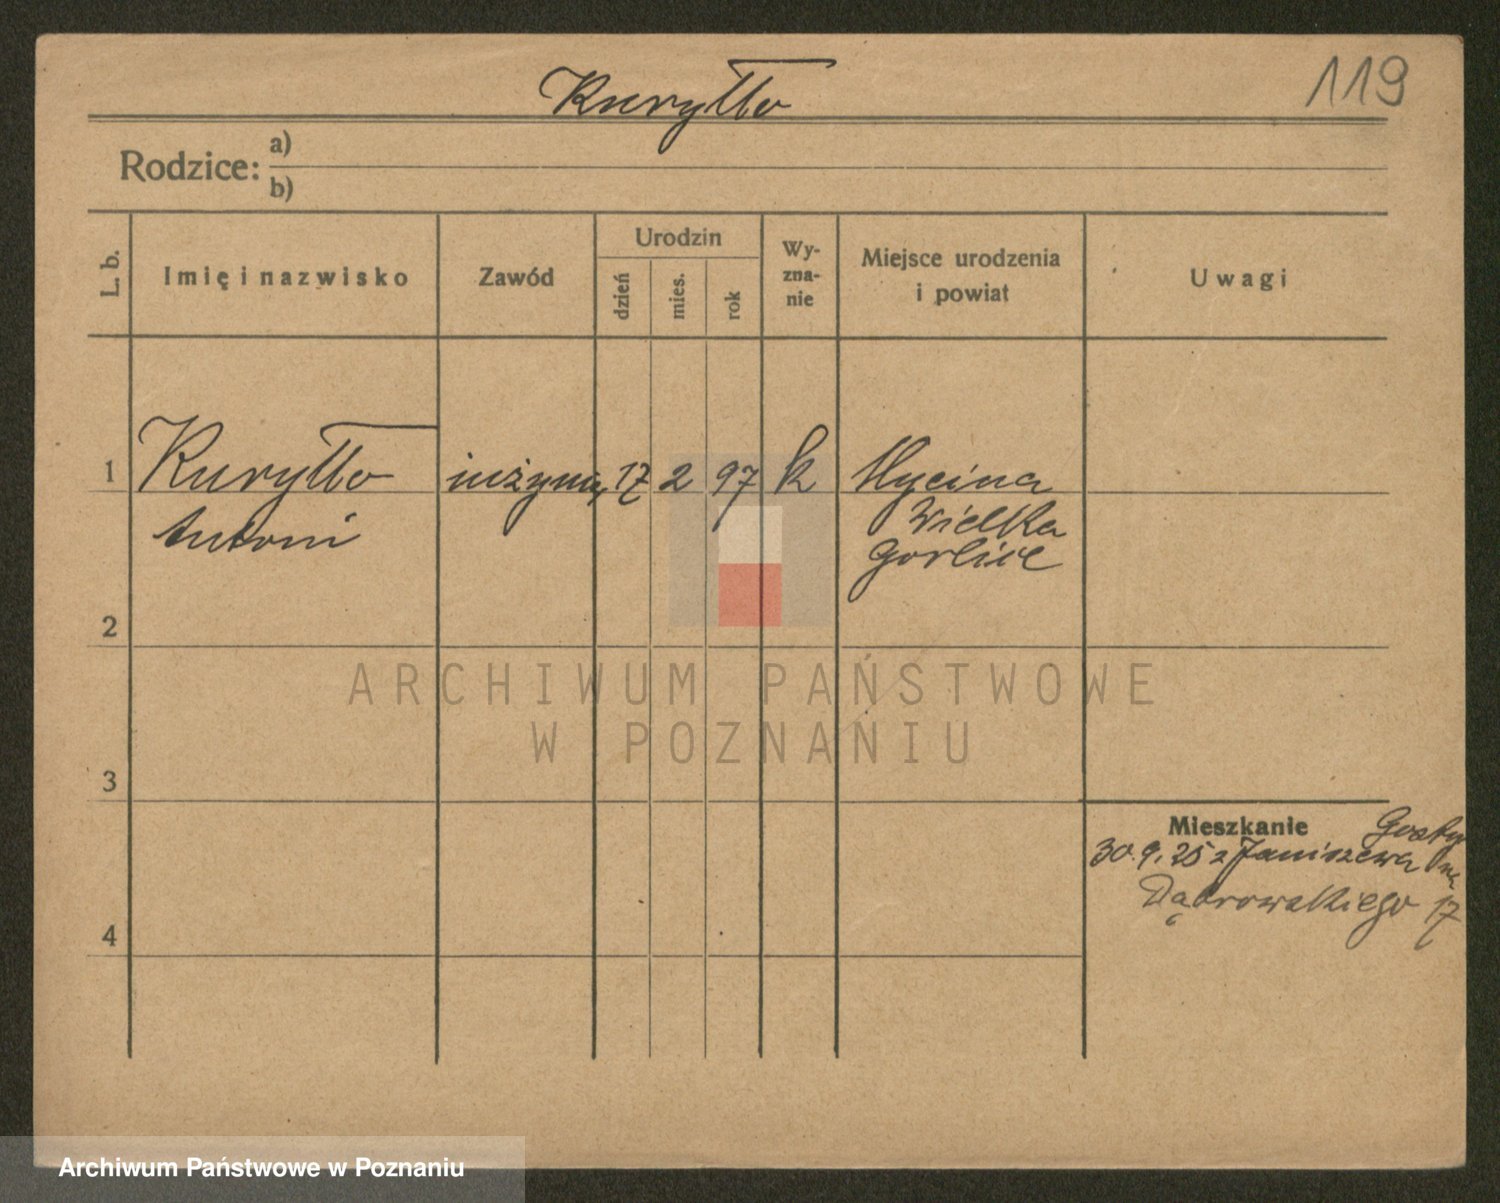 Kuryłło
119
Rodzice: a)
b)
L. b.
Imię i nazwisko
Zawód
Urodzin
dzień
mies.
rok
Wy-
zna-
nie
Miejsce urodzenia
i powiat
Uwagi
1
Kuryłło
Antoni
17
2
97
k
Wielka
Gorlice
2
3
4
Mieszkanie
30.9.25 z Janiszewa
Dąbrowskiego 17
ARCHIWUM PAŃSTWOWE
W POZNANIU
Archiwum Państwowe w Poznaniu